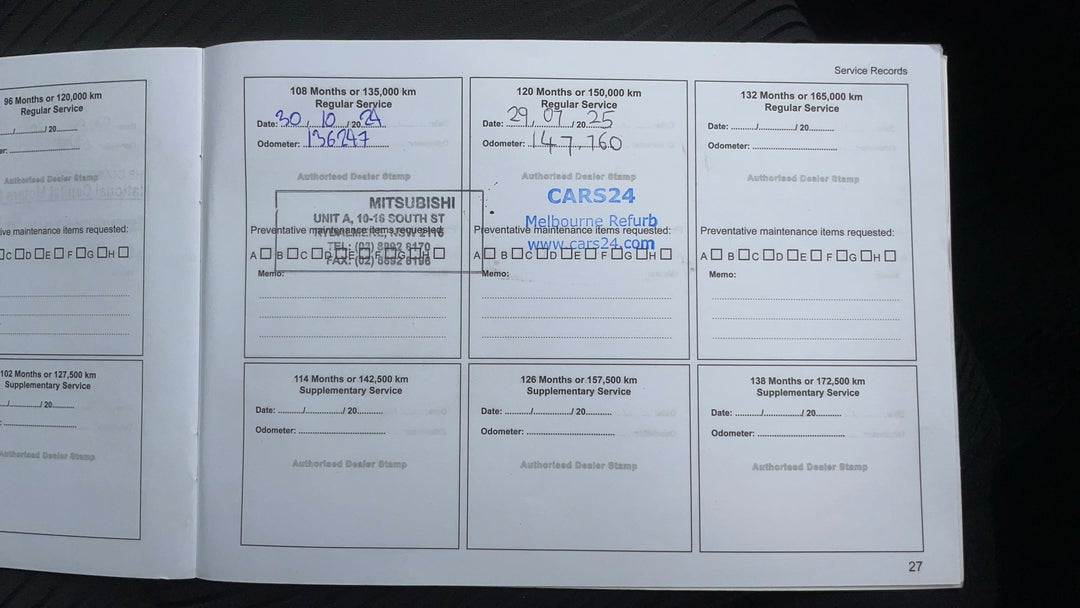 Service Records
96 Months or 120,000 km
Regular Service
/ 20
Authorised Dealer Stamp
ive maintenance items requested:
C D E F G H
102 Months or 127,500 km
Supplementary Service
/ 20
Authorised Dealer Stamp
108 Months or 135,000 km
Regular Service
Date: 30, 10 / 20 24
Odometer: 136247
Authorised Dealer Stamp
MITSUBISHI
UNIT A, 10-16 SOUTH ST
RYDALMERE, NSW 2116
Preventative maintenance items requested:
TEL: (02) 8892 8170
A B C D E F G H
FAX: (02) 8892 8196
Memo:
114 Months or 142,500 km
Supplementary Service
Date: / / 20
Odometer:
Authorised Dealer Stamp
120 Months or 150,000 km
Regular Service
Date: 29, 07 / 20 25
Odometer: 147,760
Authorised Dealer Stamp
CARS24
Melbourne Refurb
Preventative maintenance items requested:
www.cars24.com
A B C D E F G H
Memo:
126 Months or 157,500 km
Supplementary Service
Date: / / 20
Odometer:
Authorised Dealer Stamp
132 Months or 165,000 km
Regular Service
Date: / / 20
Odometer:
Authorised Dealer Stamp
Preventative maintenance items requested:
A B C D E F G H
Memo:
138 Months or 172,500 km
Supplementary Service
Date: / / 20
Odometer:
Authorised Dealer Stamp
27